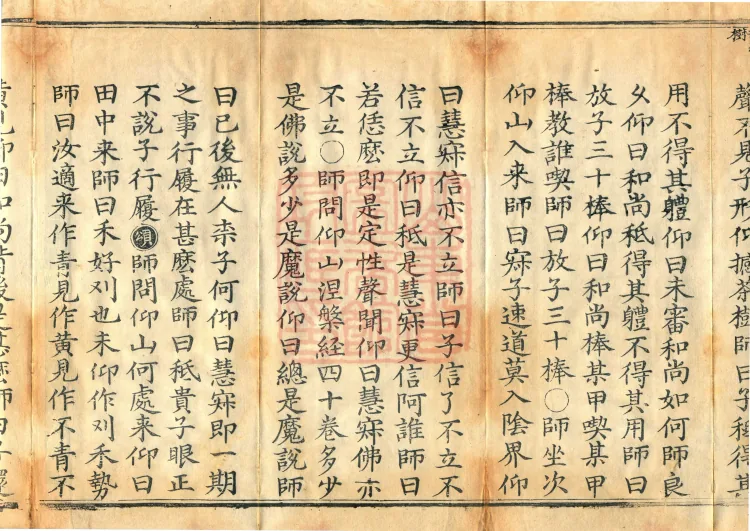 樹
聲不見子形仰撼茶樹師曰子秖得其
用不得其軆仰曰未審和尚如何師良
久仰曰和尚秖得其軆不得其用師曰
放子三十棒仰曰和尚棒某甲喫某甲
棒教誰喫師曰放子三十棒〇師坐次
仰山入来師曰寐子速道莫入陰界仰
曰慧寐信亦不立師曰子信了不立不
信不立仰曰秖是慧寐更信阿誰師曰
若恁麽即是定性聲聞仰曰慧寐佛亦
不立〇師問仰山涅槃経四十卷多少
是佛說多少是魔說仰曰總是魔說師
曰已後無人柰子何仰曰慧寐即一期
之事行履在甚麽處師曰秖貴子眼正
不說子行履頌師問仰山何處来仰曰
田中来師曰禾好刈也未仰作刈禾勢
師曰汝適来作青見作黄見作不青不
黄見仰曰和尚背後是甚麽師曰子還